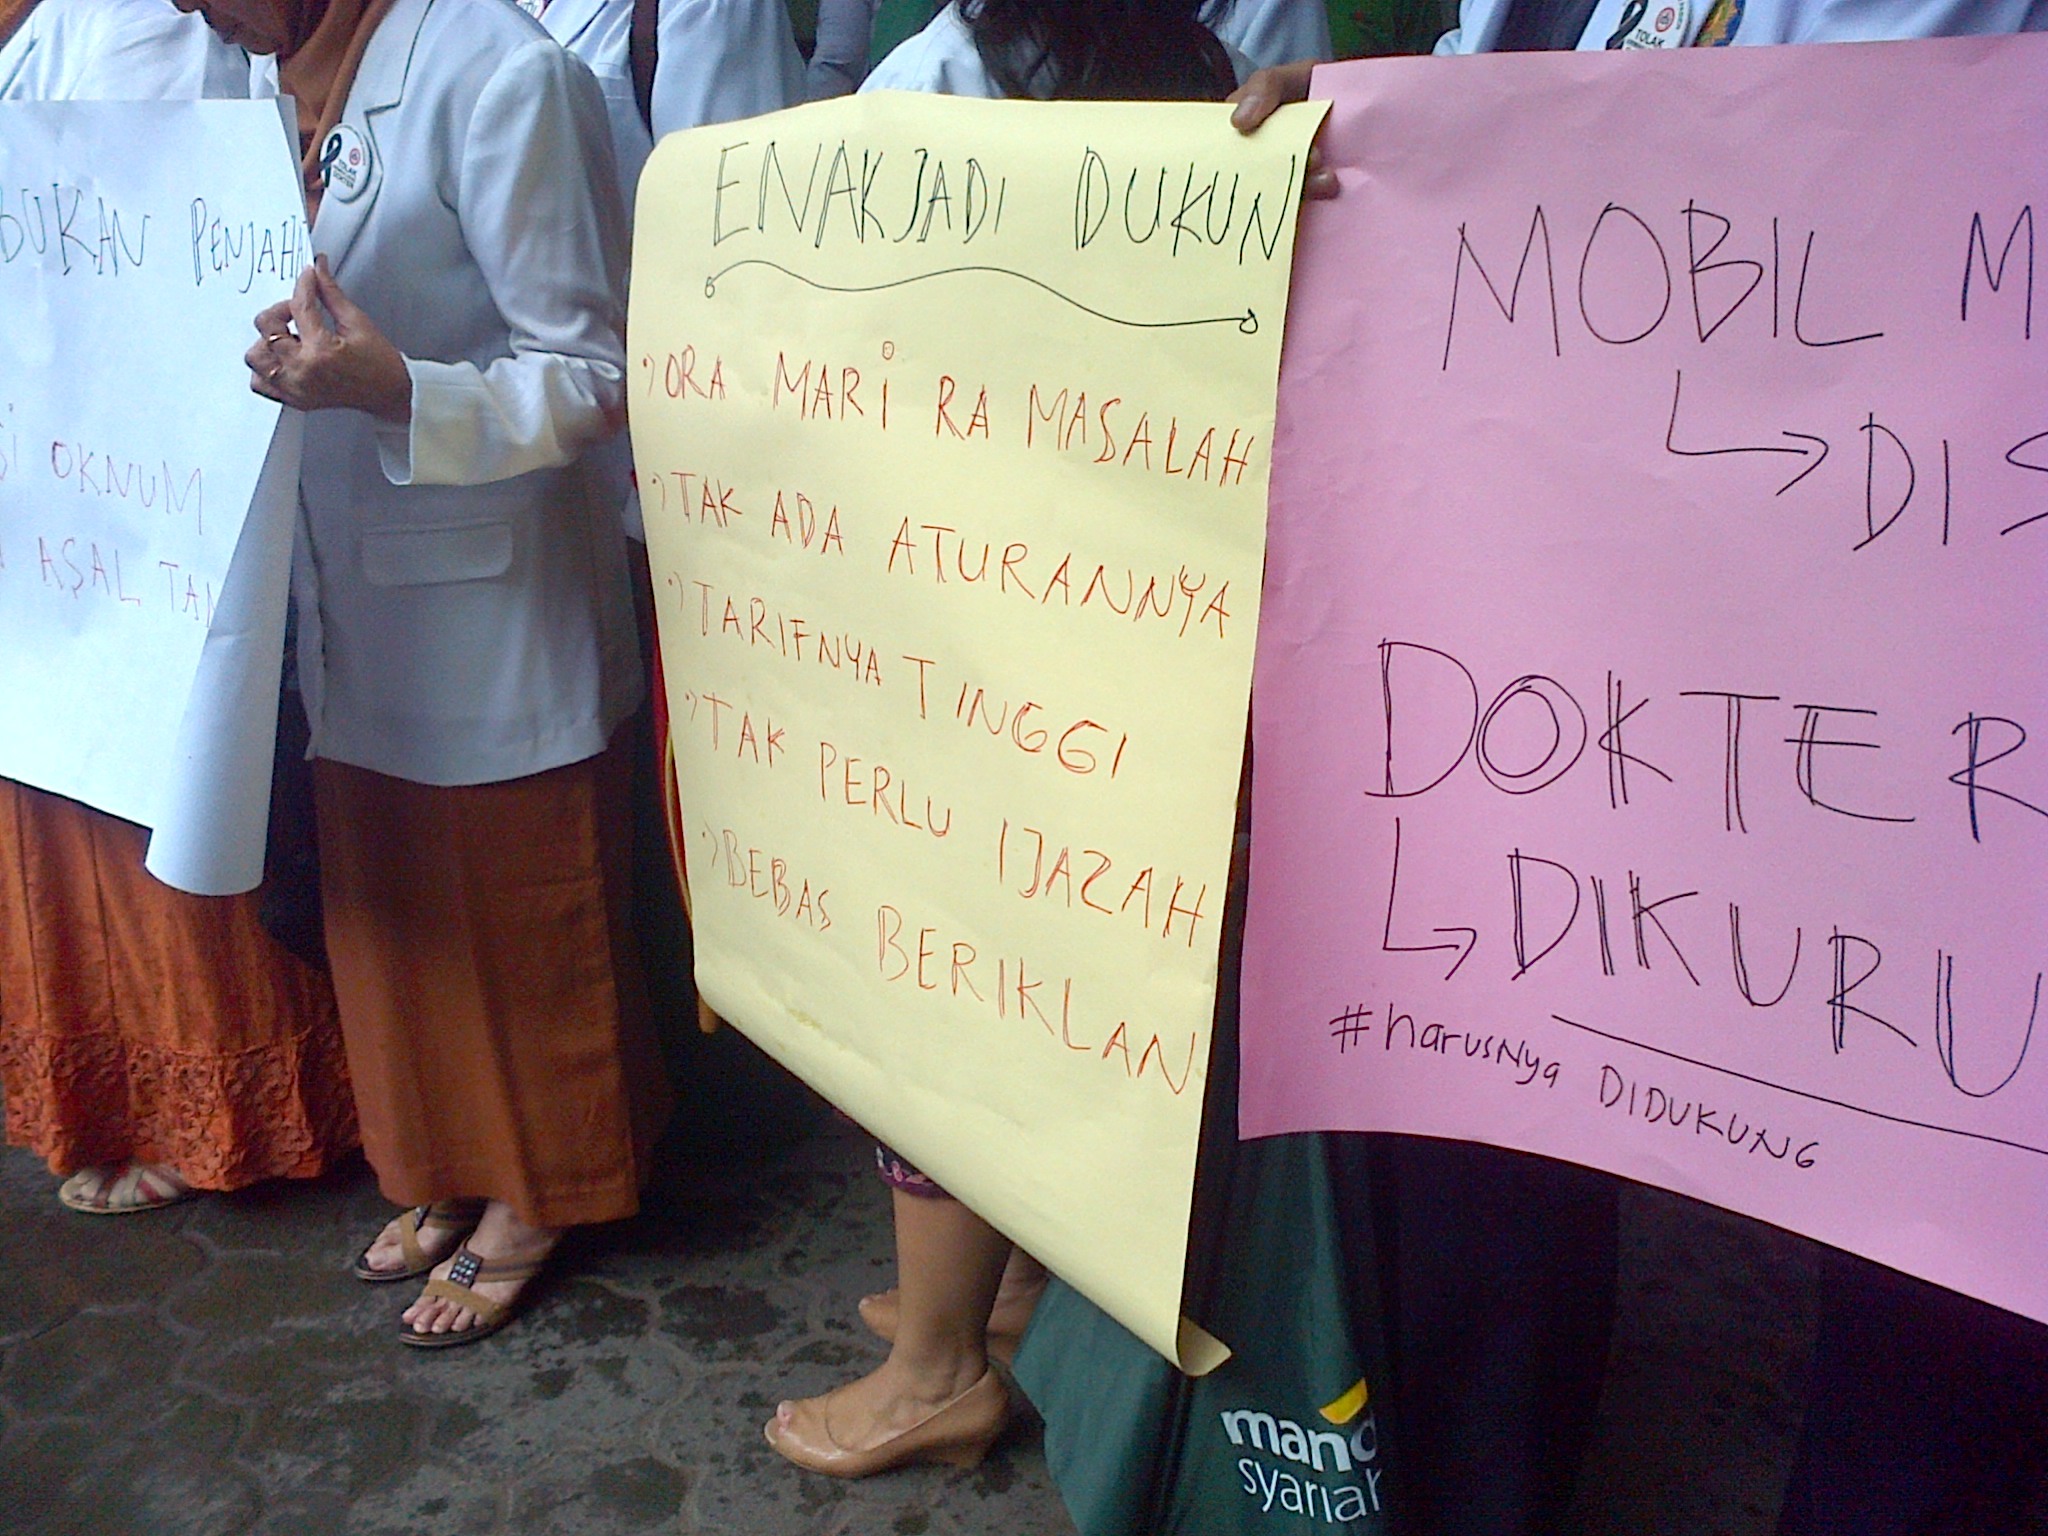 BUKAN PENJAHA
OKNUM
ASAL TAN
TOLAK
ENAK JADI DUKUN
ORA MARI RA MASALAH
TAK ADA ATURANNYA
TARIFNYA TINGGI
TAK PERLU IJAZAH
BEBAS BERIKLAN
TOLAK
MOBIL M
DIS
DOKTER
DIKURU
#harusNya DIDUKUNG
mand
syariah